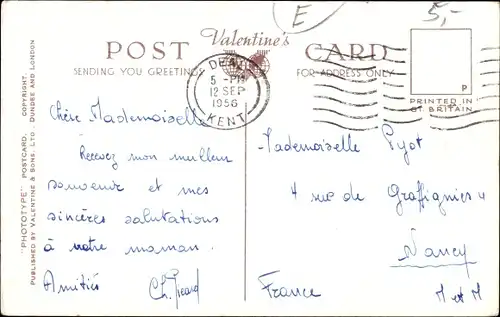 E
5,-
POST
Valentine's
CARD
SENDING YOU GREETINGS
FOR ADDRESS ONLY
DEAL
5 - PM
12 SEP
1956
KENT
P
PRINTED IN
GT. BRITAIN
"PHOTOTYPE" POSTCARD. COPYRIGHT.
PUBLISHED BY VALENTINE & SONS, LTD., DUNDEE AND LONDON
Chère Mademoiselle
Recevez mon meilleur
souvenir et mes
sincères salutations
à votre maman.
Amitiés Ch. Picard
Mademoiselle Pyot
4 rue de Graffignies
Nancy
France M et M